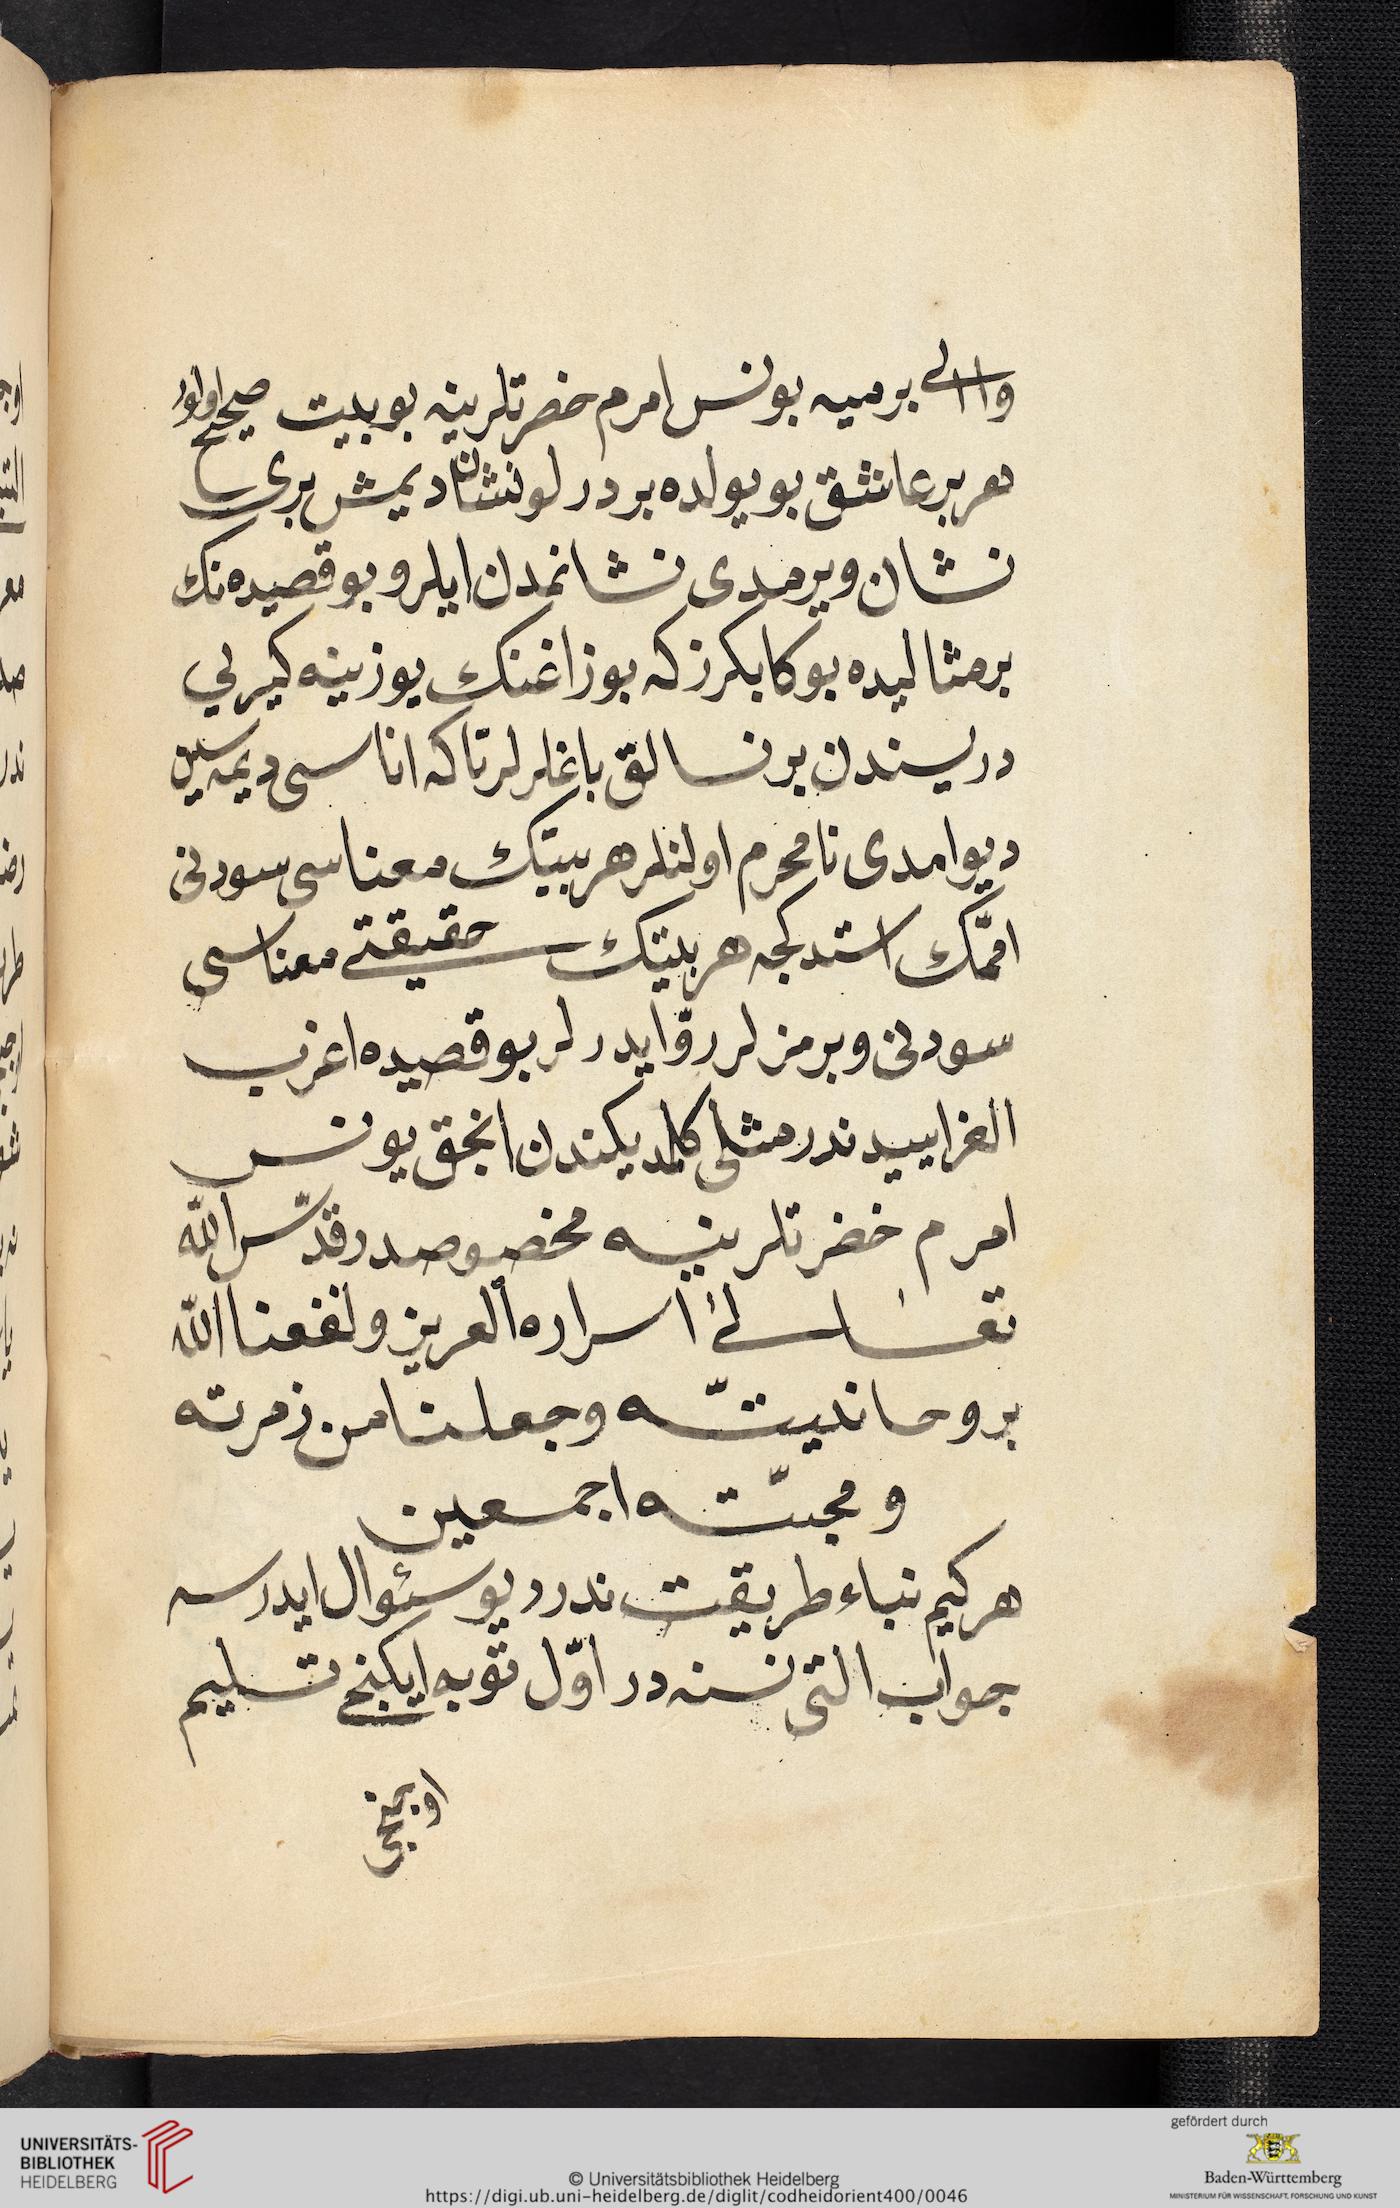 واالى برميه يونس امرم خضرتلرينه بو بيت صحيح اولور
هر بر عاشق بو يولده بر درلو نشان ديمش برى
نشان ويرمدى نشانمدن ايلرو بو قصيده نك
بر مثاليده بوكا بكرز كه بوزاغنك يوزينه كيرپى
دريسندن برنسالق باغلرلر تا كه اناسى ديمه سين
ديو امدى نامحرم اولنلر هر بيتك معناسى سودنى
اممك استدكجه هر بيتك حقيقتى معناسى
سودنى ويرمزلر ردّ ايدرلر بو قصيده اغرب
الغرايبدندر مثلى كلمديكندن انجق يونس
امرم خضرتلرينه مخصوصدر قدّس الله
تعالىٰ اسراره العزيز ونفعنا الله
بروحانيتّه وجعلنا من زمرته
ومحبّته اجمعين
هر كيم بناء طريقت ندر ديو سئوال ايدرسه
جواب التى نسنه در اوّل توبه ايكنجى تسليم
اوچنجى
UNIVERSITÄTS-
BIBLIOTHEK
HEIDELBERG
© Universitätsbibliothek Heidelberg
https://digi.ub.uni-heidelberg.de/diglit/codheidorient400/0046
gefördert durch
Baden-Württemberg
MINISTERIUM FÜR WISSENSCHAFT, FORSCHUNG UND KUNST